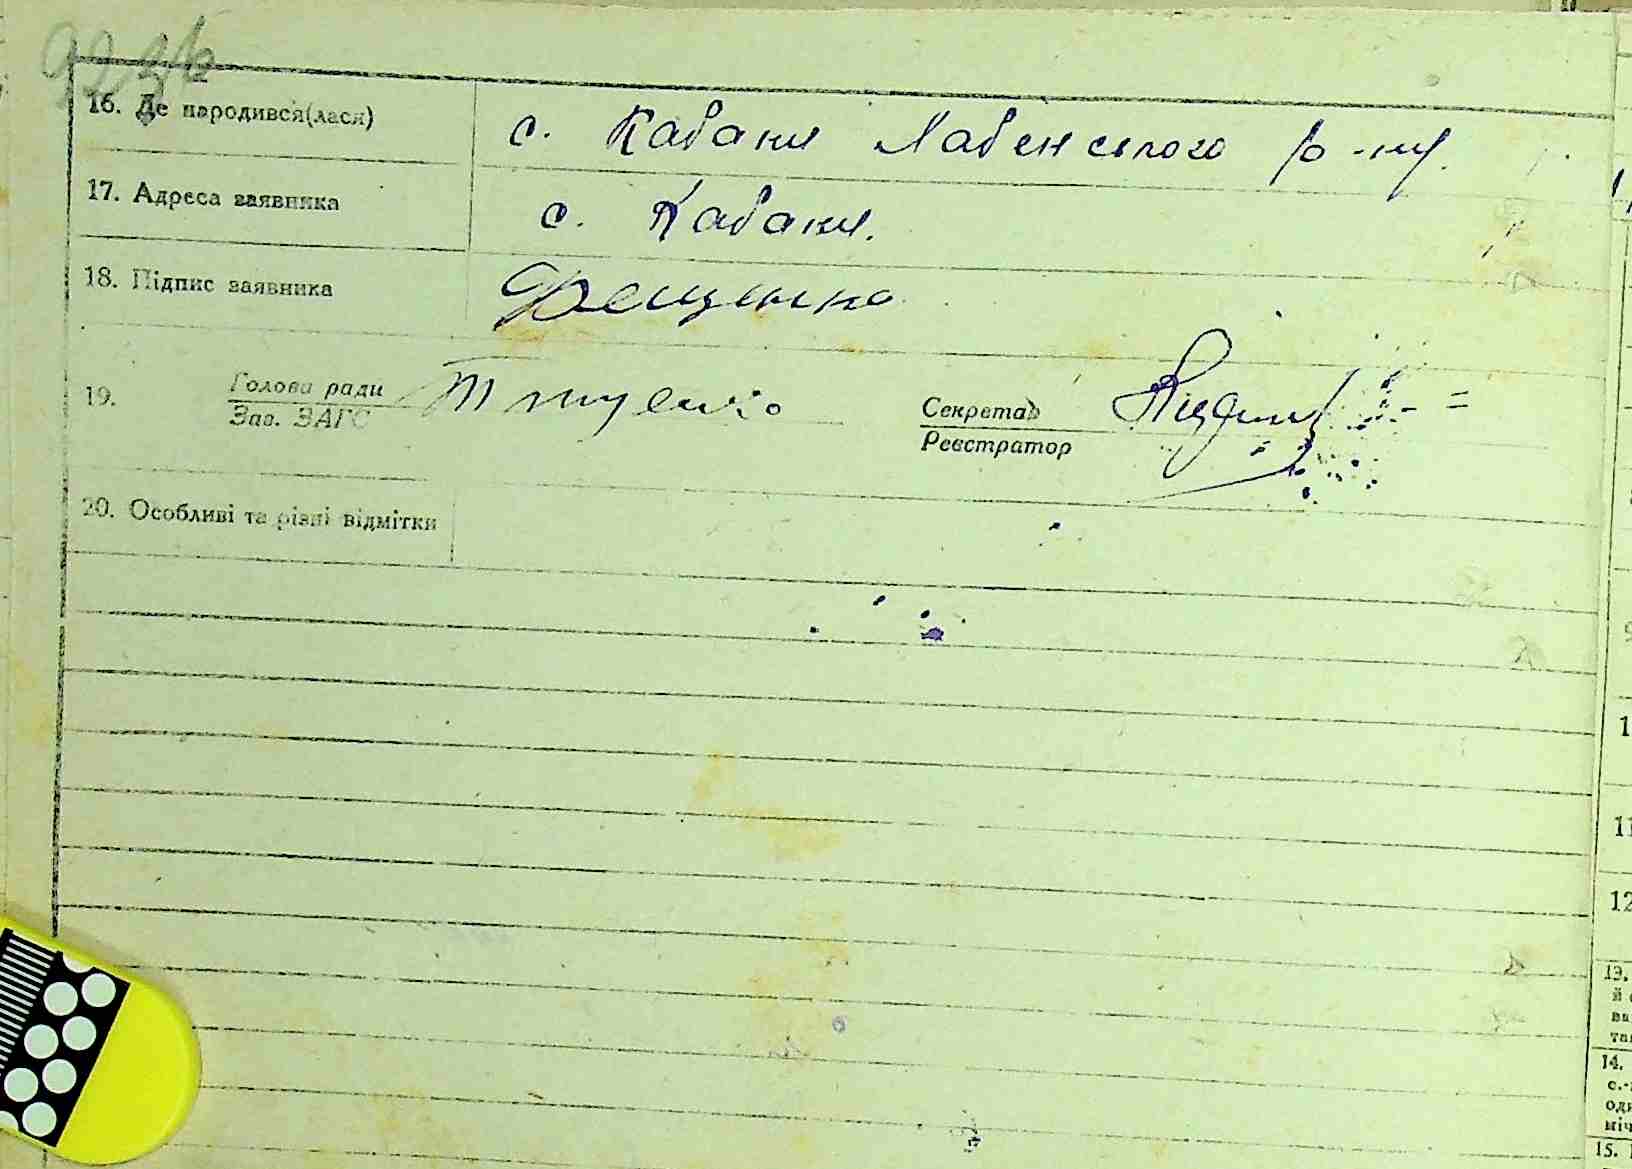 16. Де народився(лася) с. Кабани Лабенського р-ну.
17. Адреса заявника с. Кабани.
18. Підпис заявника Фещенко
19. Голова ради Секретар
Зав. ЗАГС Реєстратор
20. Особливі та різні відмітки